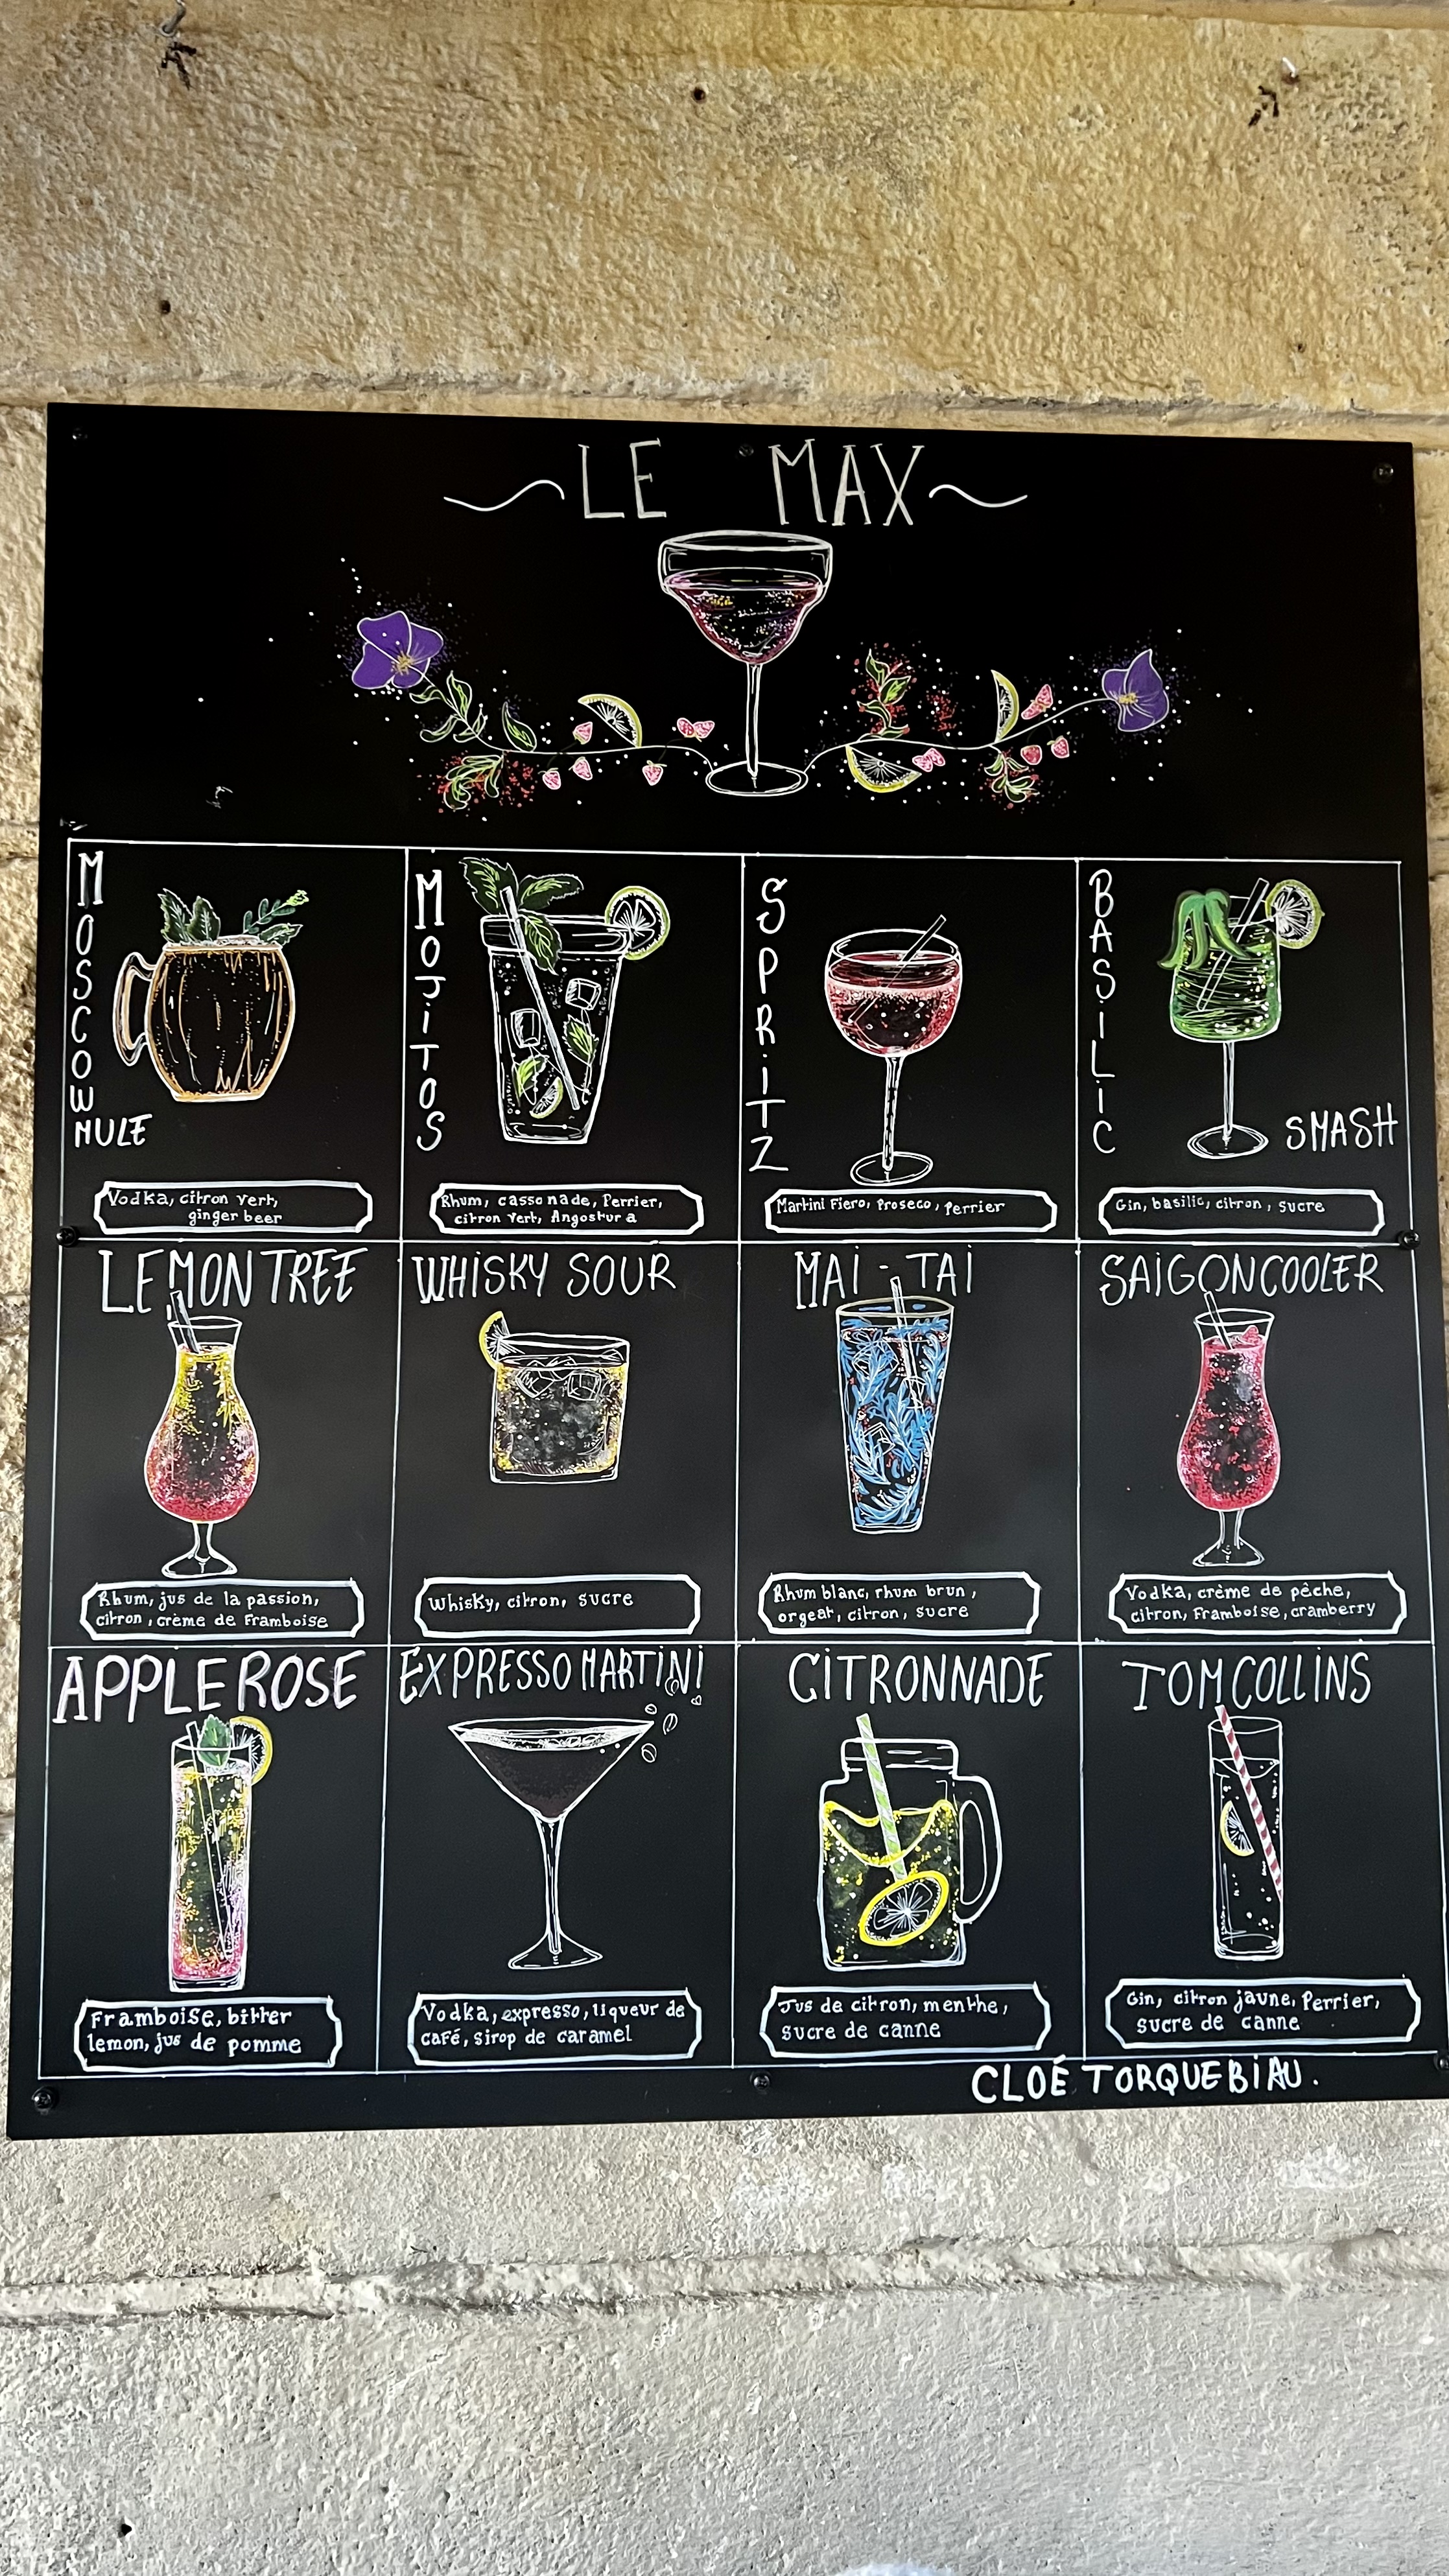 LE MAX
MOSCOW
MULE
Vodka, citron vert,
ginger beer
MOJITOS
Rhum, cassonade, Perrier,
citron vert, Angostura
SPRITZ
Martini Fiero, Proseco, Perrier
BASILIC
SMASH
Gin, basilic, citron, sucre
LEMON TREE
Rhum, jus de la passion,
citron, crème de Framboise
WHISKY SOUR
Whisky, citron, sucre
MAI-TAI
Rhum blanc, rhum brun,
orgeat, citron, sucre
SAIGON COOLER
Vodka, crème de pêche,
citron, Framboise, cramberry
APPLE ROSE
Framboise, bitter
lemon, jus de pomme
EXPRESSO MARTINI
Vodka, expresso, liqueur de
café, sirop de caramel
CITRONNADE
Jus de citron, menthe,
sucre de canne
TOM COLLINS
Gin, citron jaune, Perrier,
sucre de canne
CLOÉ TORQUEBIAU.